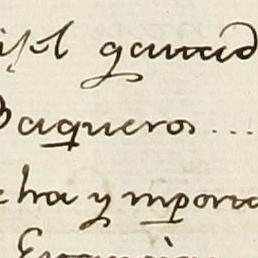 el ganad
Baqueros....
cha y mporta